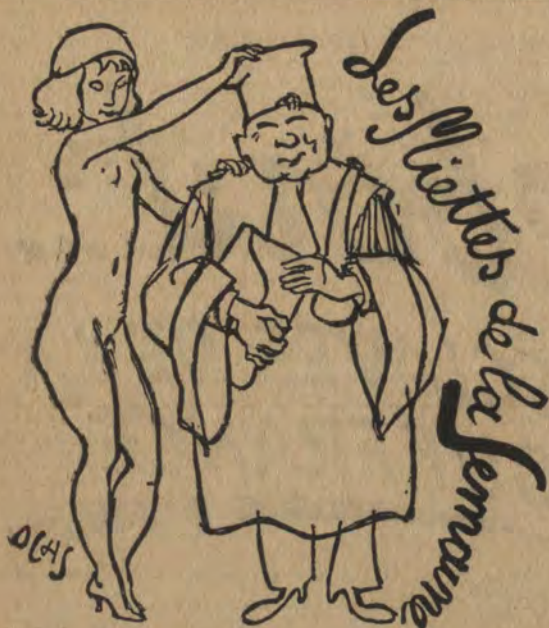 Les Miettes de la Semaine
OCHS